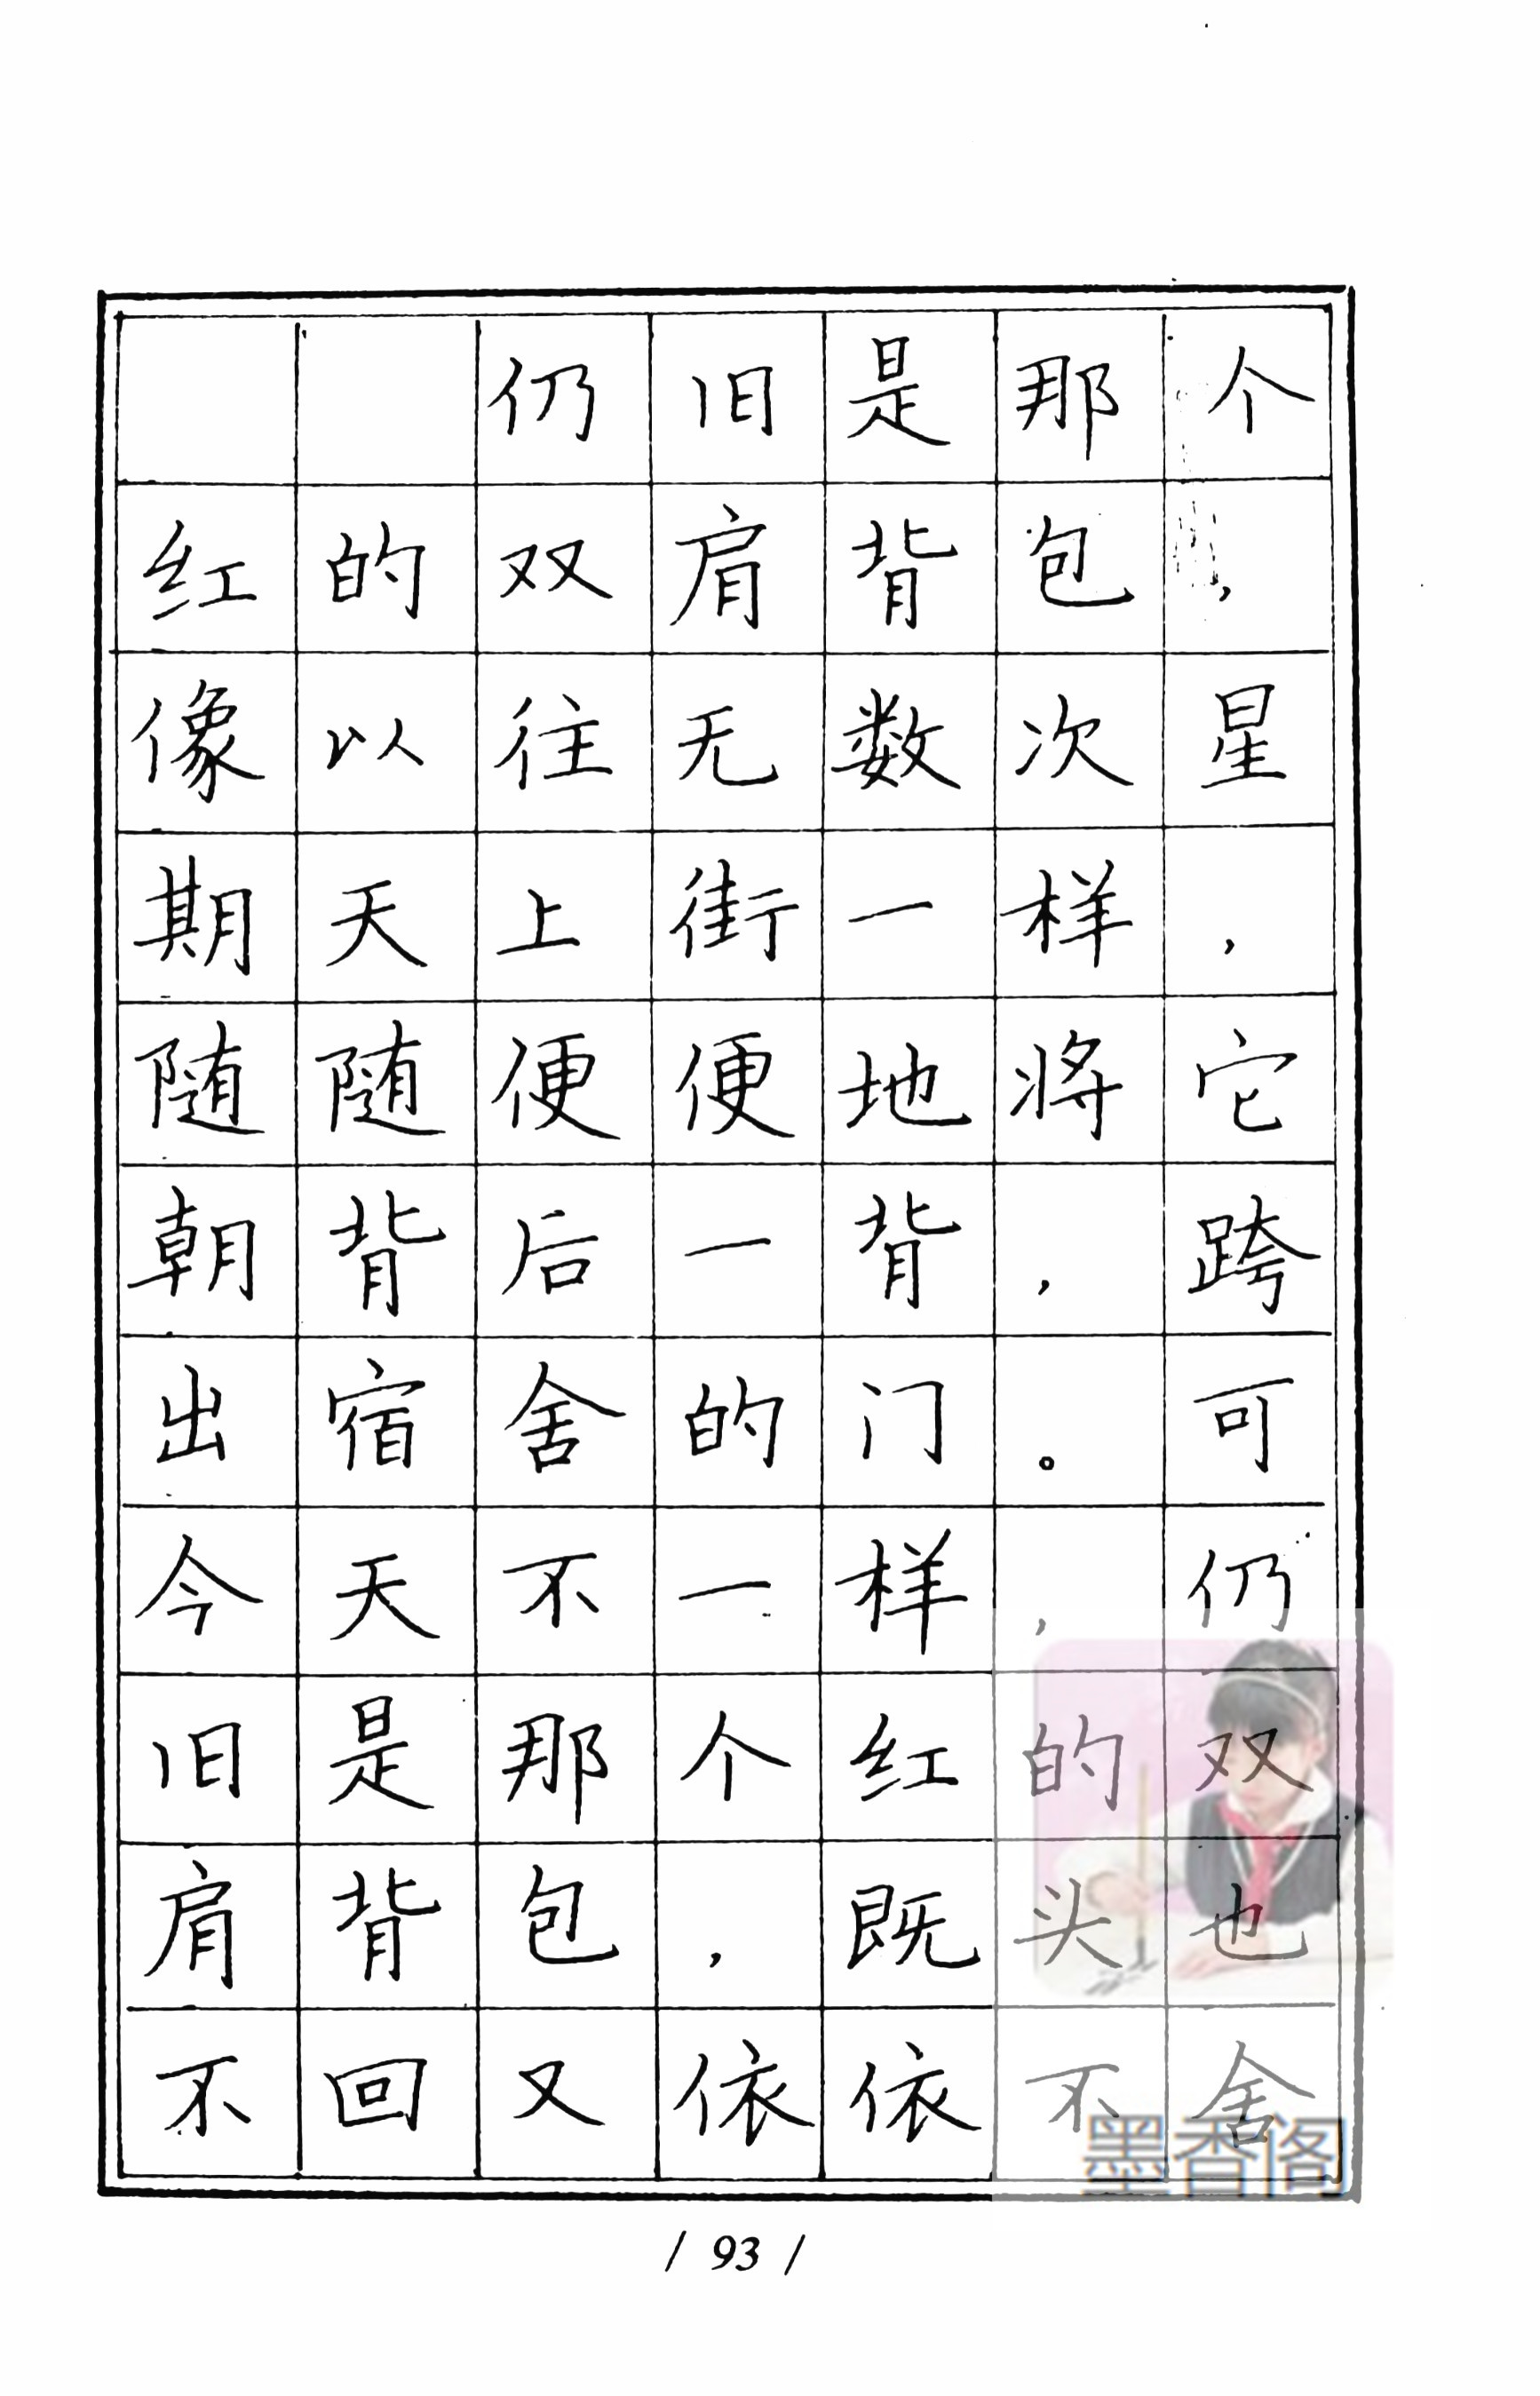 仍旧是那个
红的双肩背包，
像以往无数次星
期天上街一样，
随随便便地将它
朝背后一背，跨
出宿舍的门。可
今天不一样，仍
旧是那个红的双
肩背包，既头也
不回又依依不舍
墨香阁
/ 93 /